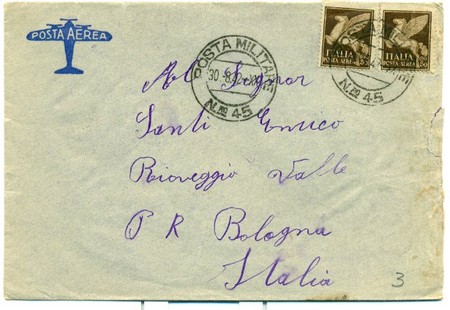 POSTA AEREA
POSTA MILITARE
30.8.42.XX
N.º 45
ITALIA
POSTA AEREA
50
ITALIA
50
N.º 45
Al Signor
Santi Enrico
Rioveggio Valle
P R Bologna
Italia
3